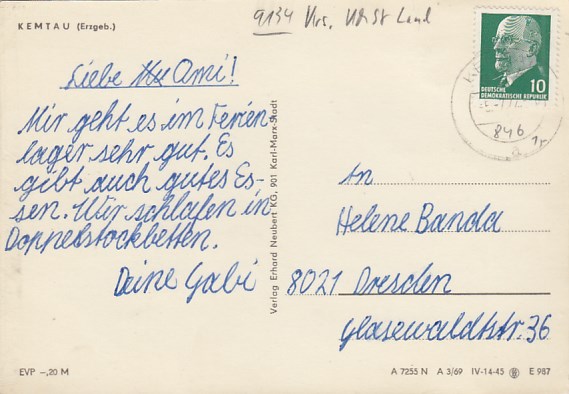 KEMTAU (Erzgeb.)
9134 Krs. Land
10
DEUTSCHE
DEMOKRATISCHE REPUBLIK
846
Liebe Omi!
Mir geht es im Ferien-
lager sehr gut. Es
gibt auch gutes Es-
sen. Wir schlafen in
Doppelstockbetten.
Deine Gabi
Verlag Erhard Neubert KG, 901 Karl-Marx-Stadt
An
Helene Banda
8021 Dresden
Glasewaldtstr. 36
EVP –,20 M
A 7255 N A 3/69 IV-14-45 E 987